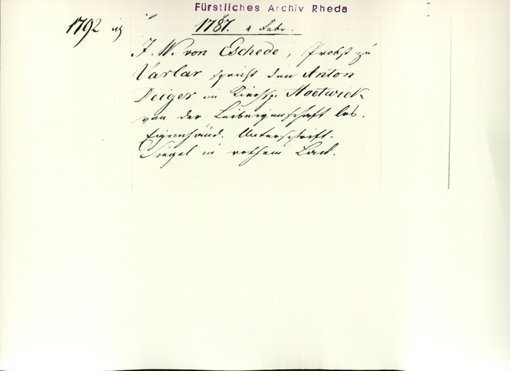 Fürstliches Archiv Rheda
1792 1787. 4 Febr.
J. W. von Eschede, Probst zu
Varlar spricht den Anton
Deiger im Kirchsp. Hoetwick
von der Leibeigenschaft los.
Eigenhänd. Unterschrift.
Siegel in rothem Lack.